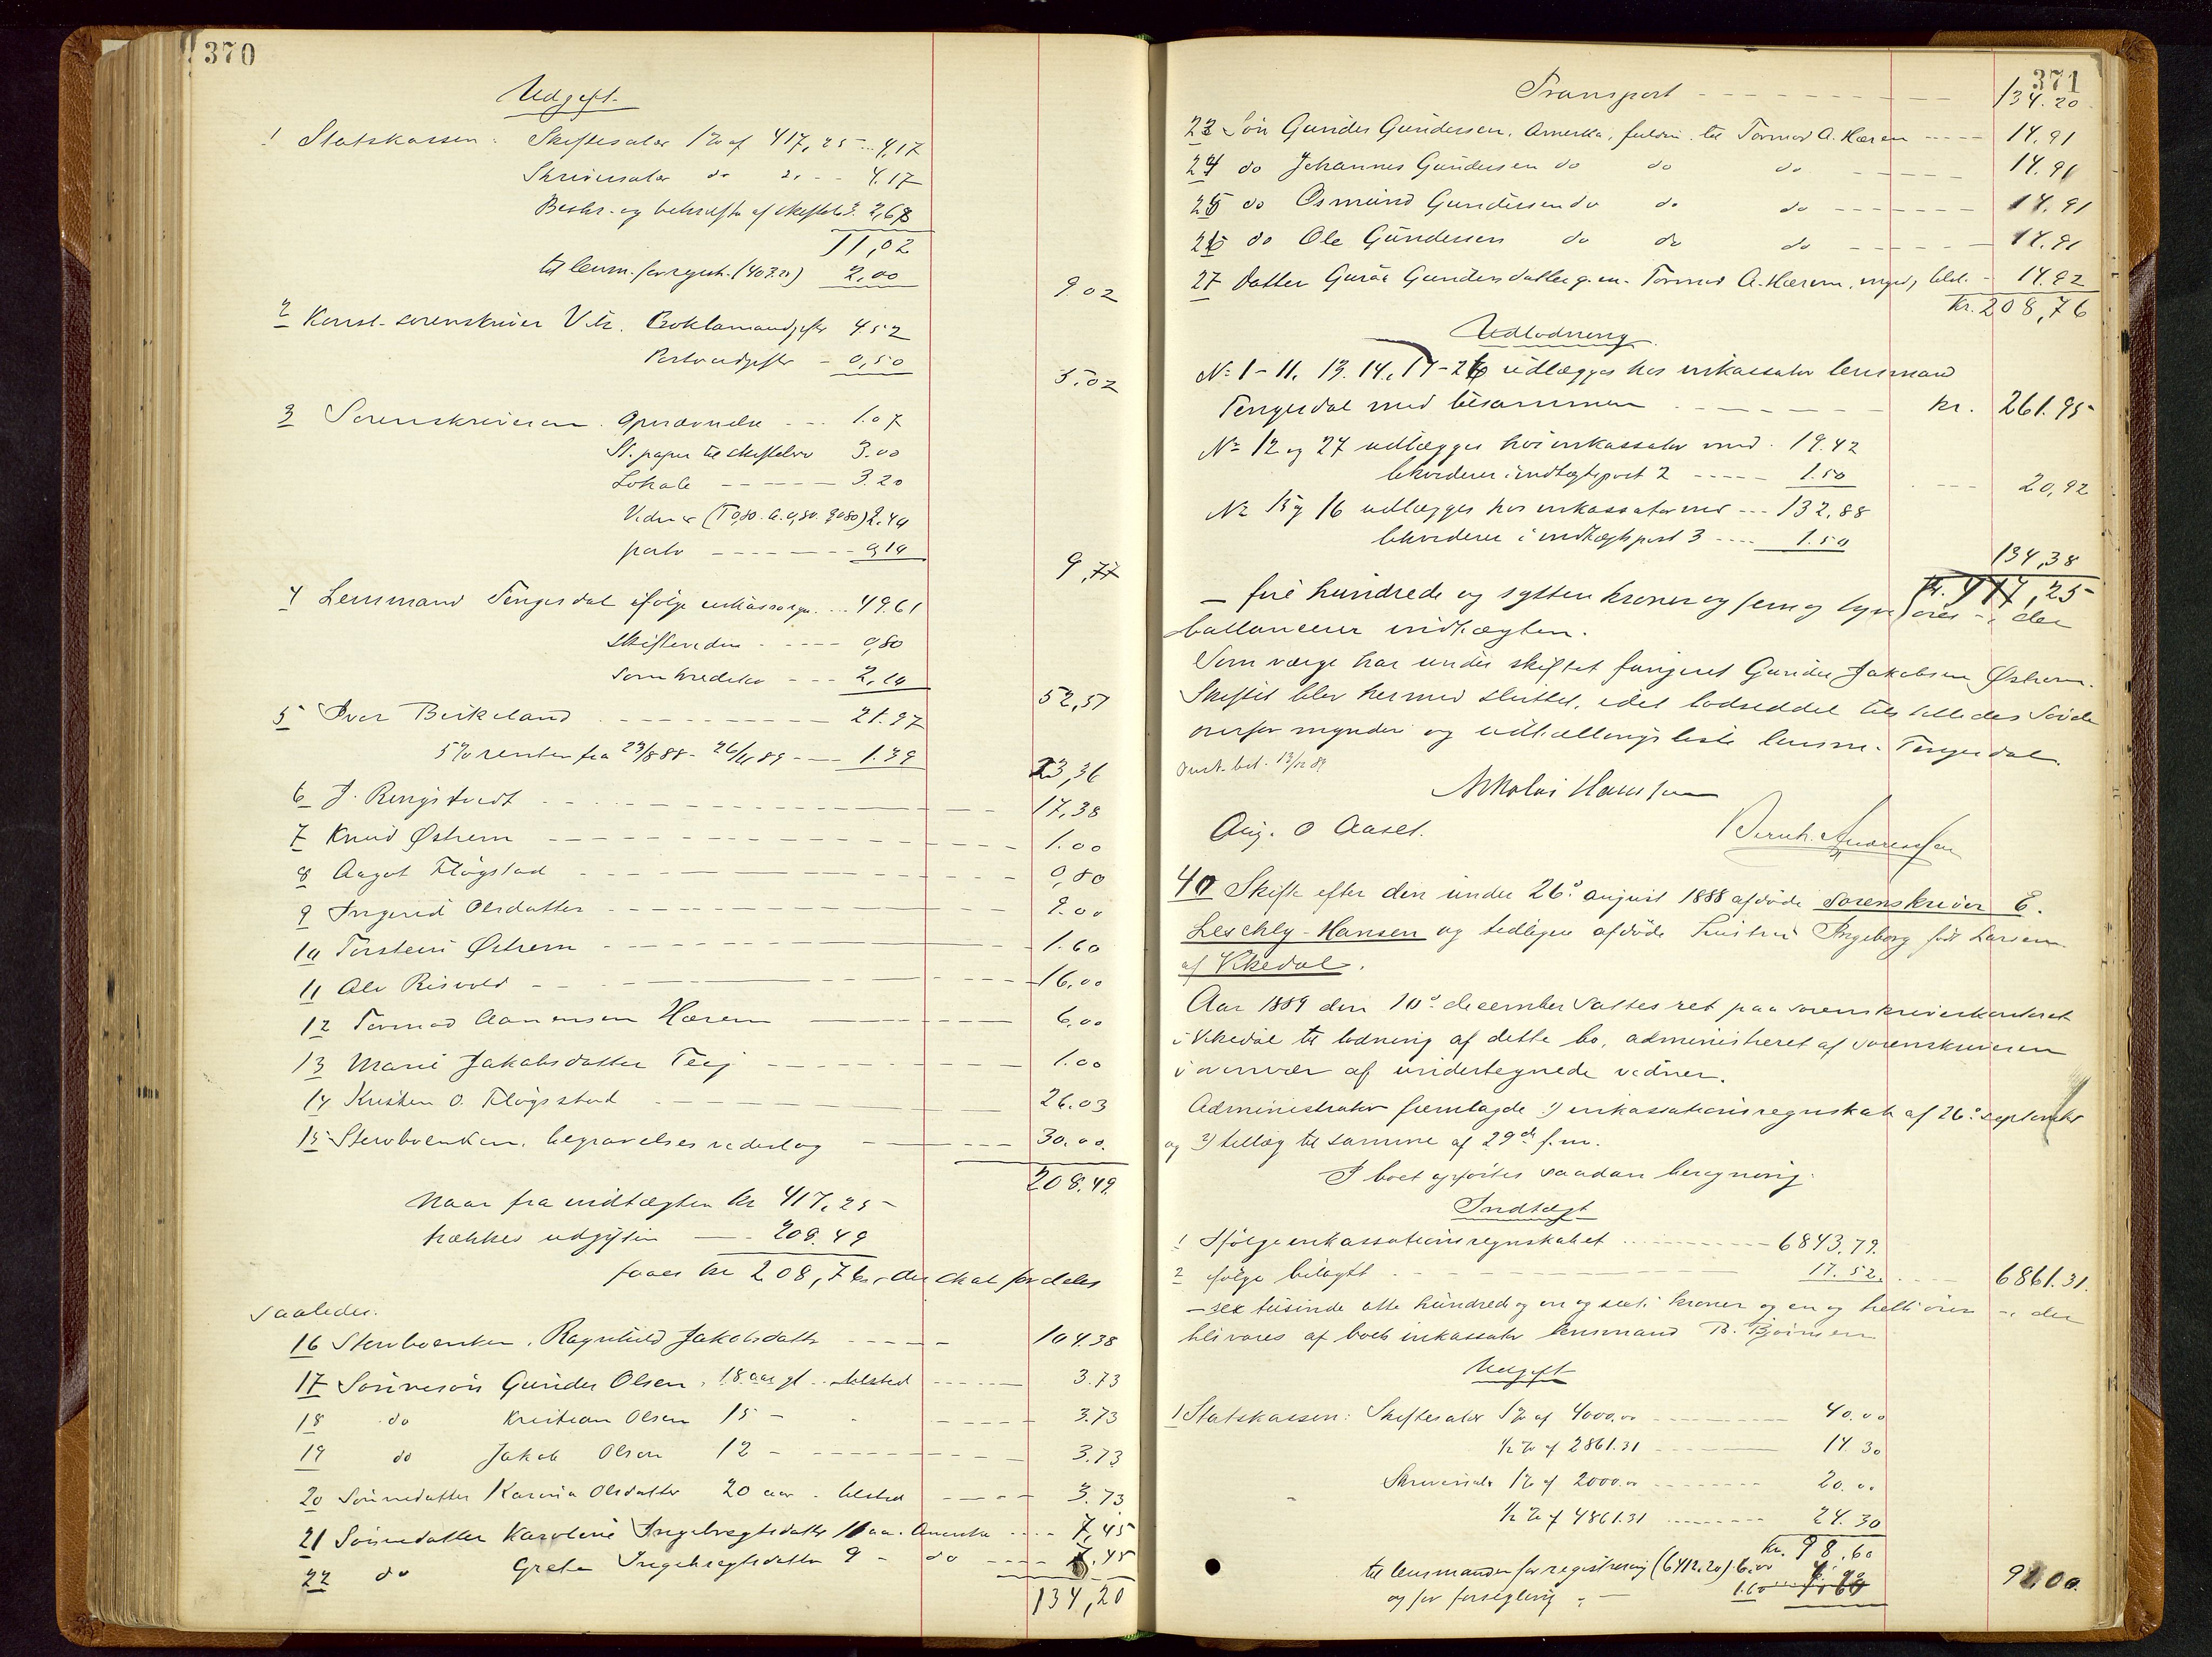 370
Udgift.
1 Statskassen: Skiftesalær 1% af 417,25 ... 4,17
Skriversalær do " - - 4.17
Beskr. og bekræft. af skiftebr. 2,68
11,02
til lensm. for registr. (403.20) 2,00
9.02
2 Konst. sorenskriver Vetr. Proklamaudgifter 4.52
Portoudgifter - 0,50
5.02
3 Sorenskriveren. Opnævnelse - - - 1.07
St. papir til skiftebrev 3.00
Lokale - - - - - 3.20
Vidner (T 0,80. A. 0,80. 0,80) 2.40
porto - - - - - - - 0,10
9,77
4 Lensmand Tengesdal ifølge inkassorgn. ... 49.61
Skiftevidne - - - - - 0,80
Som kreditor - - - 2,10
52,51
5 Iver Birkeland - - - - - - - 21.97
5% renter fra 23/8 88 - 26/11 89 - - - 1.39
23,36
6 J. Ringstvedt - - - - - 17,38
7 Knud Østrem - - - - - 1.00
8 Aagot Fløgstad - - - - - 0,80
9 Ingerid Olsdatter - - - - - 2.00
10 Torstein Østrem - - - - - 1.60
11 Ole Risvold - - - - - 16,00
12 Tormod Aanensen Hærem - - - - - 6,00
13 Marie Jakobsdatter Teig - - - - - 1.00
14 Kristen O. Fløgstad - - - - - 26.03
15 Stervboenken, begravelsesvederlag - - - 30.00.
208.49.
Naar fra indtægten kr 417,25
trækkes udgiften - - 208.49
faaes kr 208,76, der skal fordeles
saaledes.
16 Stervboenken, Ragnhild Jakobsdatter - - - - - 104.38
17 Sønnesøn Gunder Olsen, 18 aar gl. tilsted - - - - 3.73
18 do Kristian Olsen 15 - - - - - 3.73
19 do Jakob Olsen 12 - - - - - 3.73
20 Sønnedatter Karina Olsdatter 20 aar - tilsted - - - - 3.73
21 Sønnedatter Karoline Ingebregtsdatter 11 aar. Amerika - - - - 7,45
22 do Grete Ingebregtsdatter 9 - do - - - - 7.45
134,20
371
Transport - - - - - 134.20
23 Søn Gunder Gundersen, Amerika, fuldm. til Tormod A. Hærem - - - - 14.91
24 do Johannes Gundersen do do do - - - - 14.91
25 do Osmund Gundersen do do do - - - - 14.91
26 do Ole Gundersen do do do - - - - 14.91
27 Datter Guroa Gundersdatter g. m. Tormod A. Hærem, myn., tilst. - 14.92
kr. 208,76
Udlodning.
No 1 - 11. 13. 14. 17 - 26 udlægges hos inkassator lensmand
Tengesdal med tilsammen - - - - - kr. 261.95
No 12 og 27 udlægges hos inkassator med. 19.42
løsøreder i indtægtspost 2 - - - - - 1.50
- - - 20,92
No 15 og 16 udlægges hos inkassator med - - - 132.88
løsøreder i indtægtspost 3 - - - - 1.50
134,38
kr. 417,25
- fire hundrede og sytten kroner og fem og tyve øre - der
ballancerer indtægten.
Som værge har under skiftet fungeret Gunder Jakobsen Østrem.
Skiftet blev hermed sluttet, idet lodseddel tilstilledes Sønde
overformynderi og udtællingsliste lensm. Tengesdal.
Omk. bet. 13/12 89
Nikolai Hansen
Aug. O Aaset. Bernh. Andreassen
40 Skifte efter den under 26de august 1888 afdøde sorenskriver E.
Leschly-Hansen og tidligere afdøde hustru Ingeborg født Larsen
af Vikedal.
Aar 1889 den 10de december sattes ret paa sorenskriverkontoret
i Vikedal til lodning af dette bo, administreret af sorenskriveren
i overvær af undertegnede vidner.
Administrator fremlagde 1) inkassationsregnskab af 26de september
og 2) tillæg til samme af 29de f. m.
I boet opførtes saadan beregning.
Indtægt
1 Ifølge inkassationsregnskabet - - - - - 6843.79.
2 ifølge tillægget - - - - - 17.52. - - - 6861.31.
- sex tusinde otte hundred og en og seksti kroner og en og tretti øre - der
besvares af boets inkassator lensmand B. Bjørnsen
Udgift
1 Statskassen: Skiftesalær 1% af 4000.00 - - - - - 40.00
1/2 % af 2861.31 - - - - - 14.30
Skriversalær 1% af 2000.00 - - - - - 20.00
1/2 % af 4861.31 - - - - - 24.30
kr. 98.60
til lensmanden for registrering (6412.20). 6.00
og for forsegling - - 1.60 7.60
91.00.